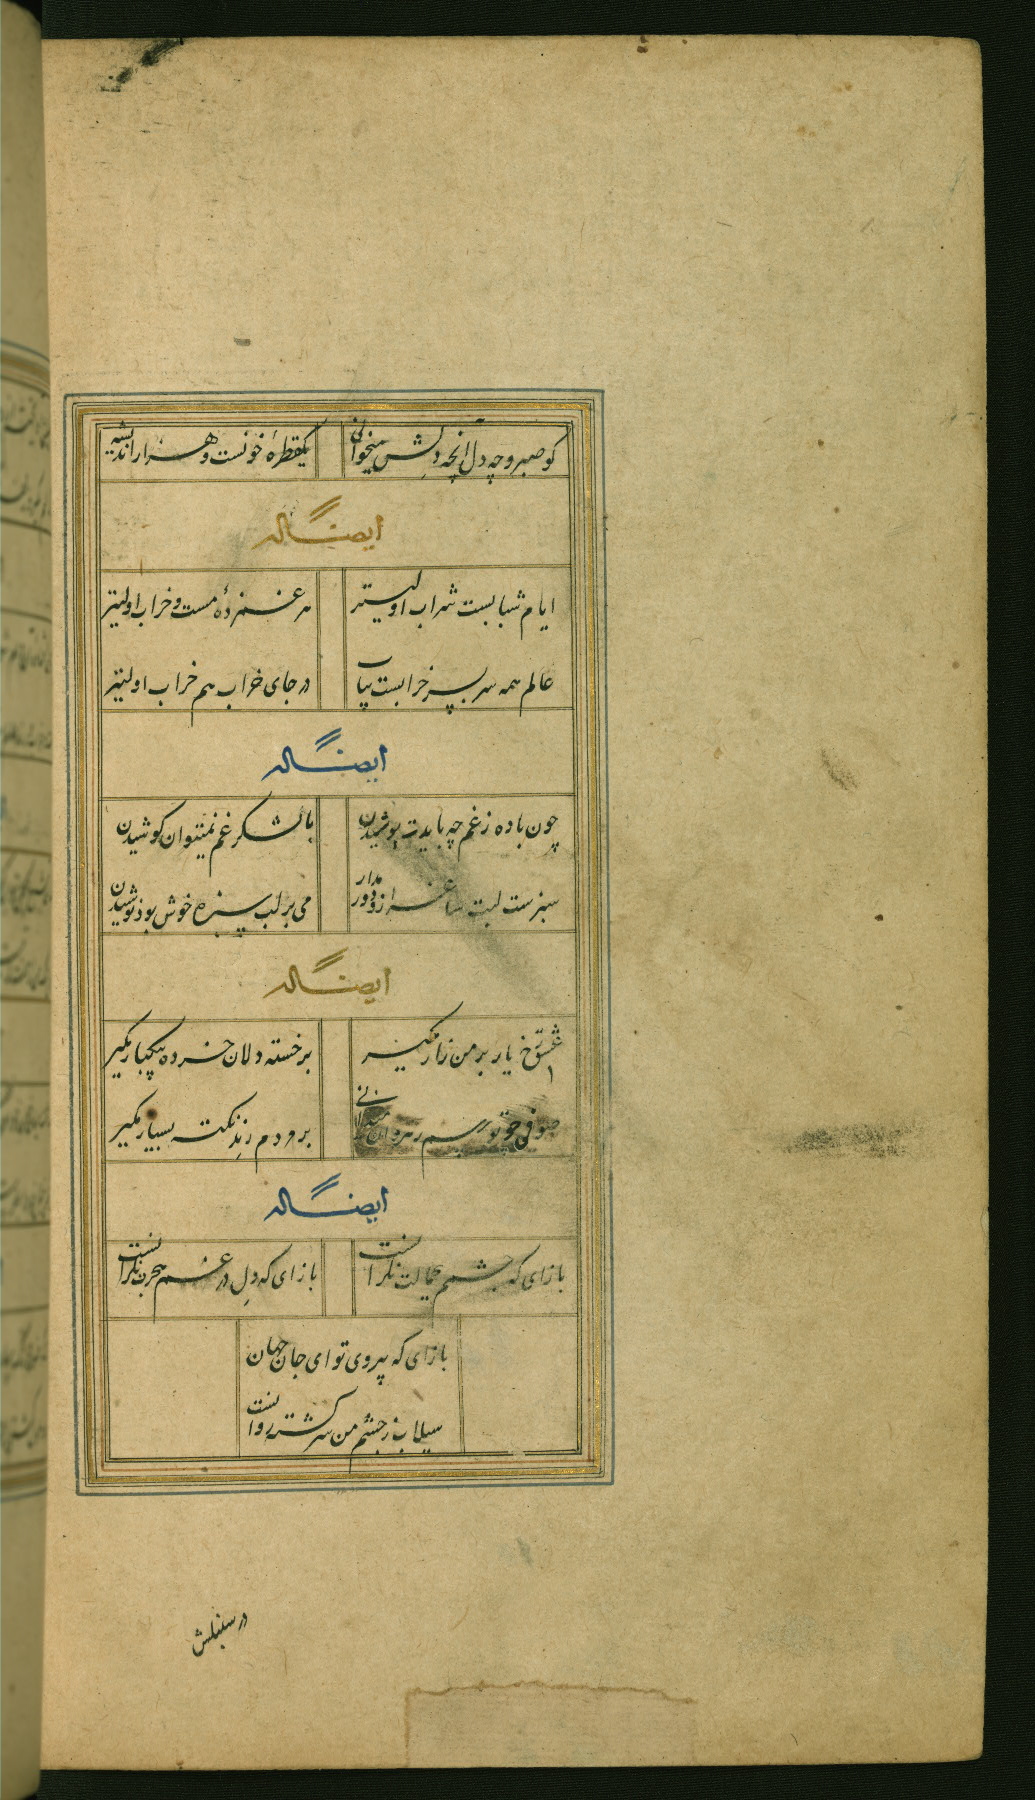 کو صبر و چه دل آنچه دلش میخوانی یکقطرهٔ خونست و هزار اندیشه
ایضاً له
ایام شبابست شراب اولیتر هر غمزدهٔ مست و خراب اولیتر
عالم همه سر بسر خرابست بیاب در جای خراب هم خراب اولیتر
ایضاً له
چون باده ز غم چه بایدت جوشیدن با لشکر غم نمیتوان کوشیدن
سبزست لبت ساغر ازو دور مدار می بر لب سبزه خوش بود نوشیدن
ایضاً له
عشق رخ یار بر من زار مگیر بر خسته دلان خرده بیکبار مگیر
صوفی چو تو رسم رهروان میدانی بر مردم رند نکته بسیار مگیر
ایضاً له
بازای که چشم بجمالت نگرانست بازای که دل در غم هجرت نگرانست
بازای که بیروی تو ای جان جهان
سیلاب ز چشم من سرگشته روانست
در سنبلش